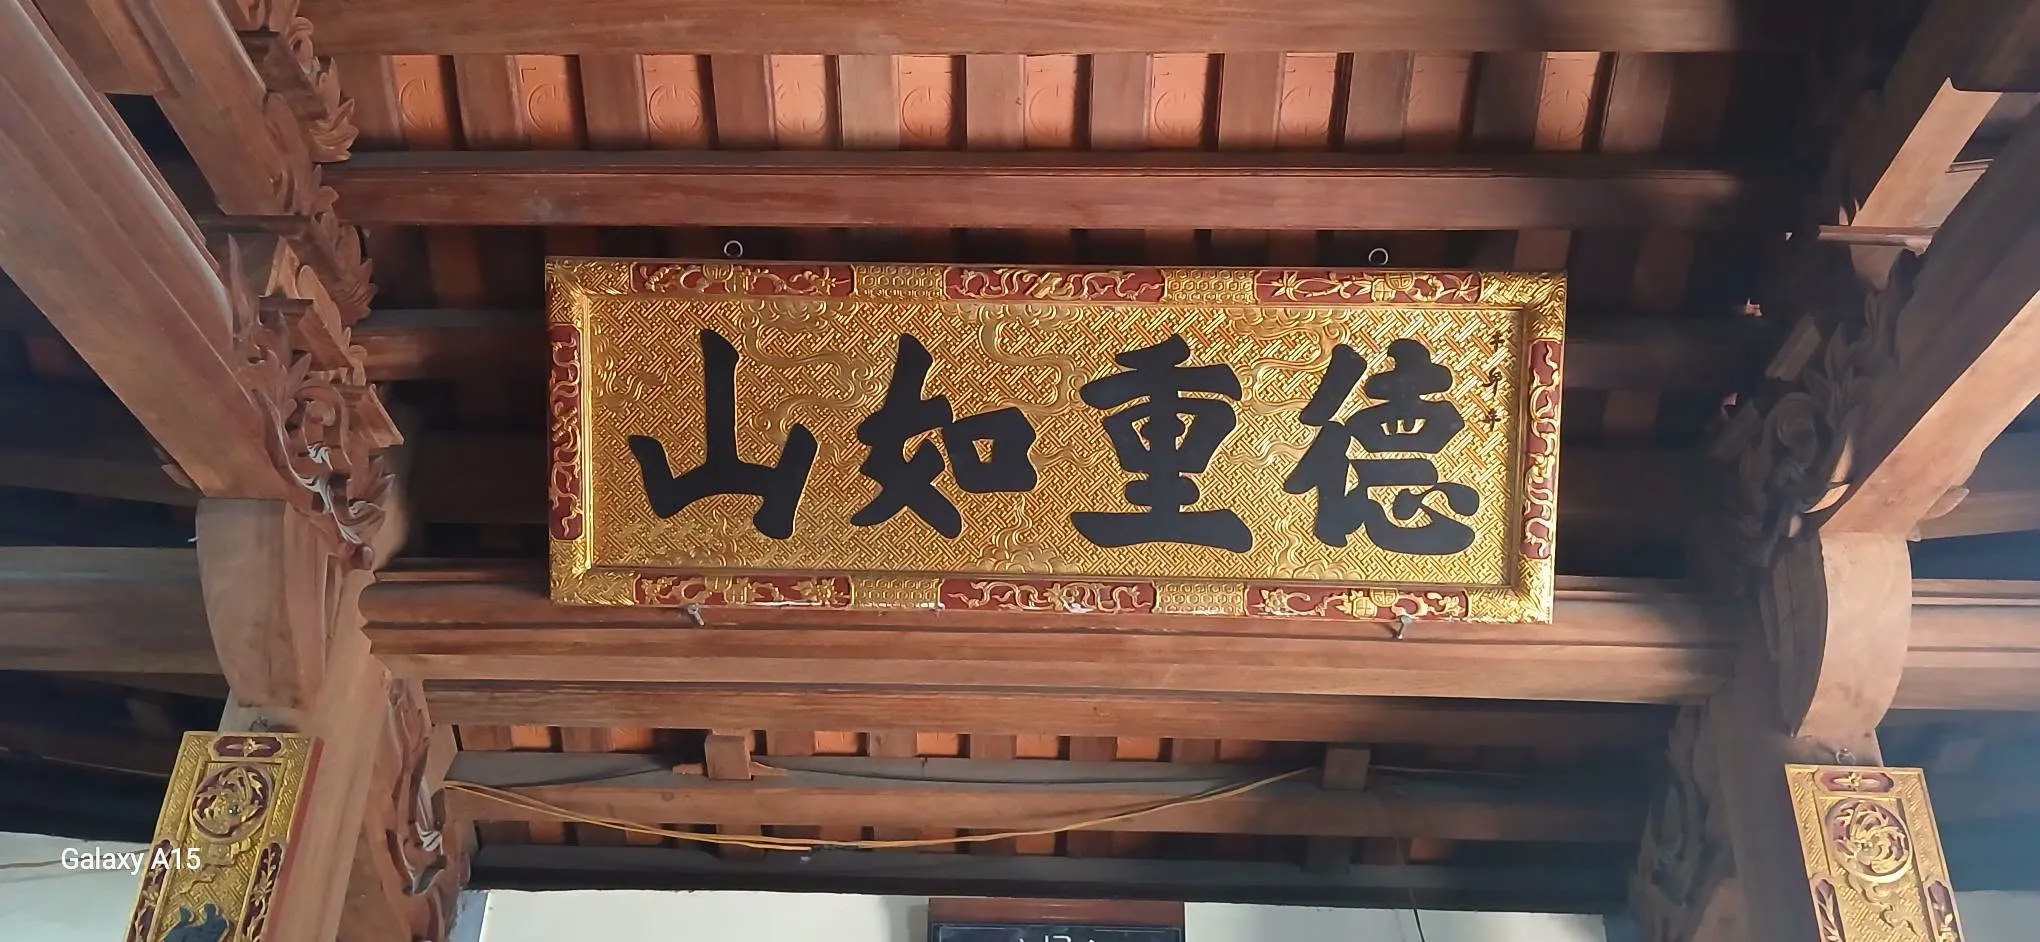 德重如山
Galaxy A15